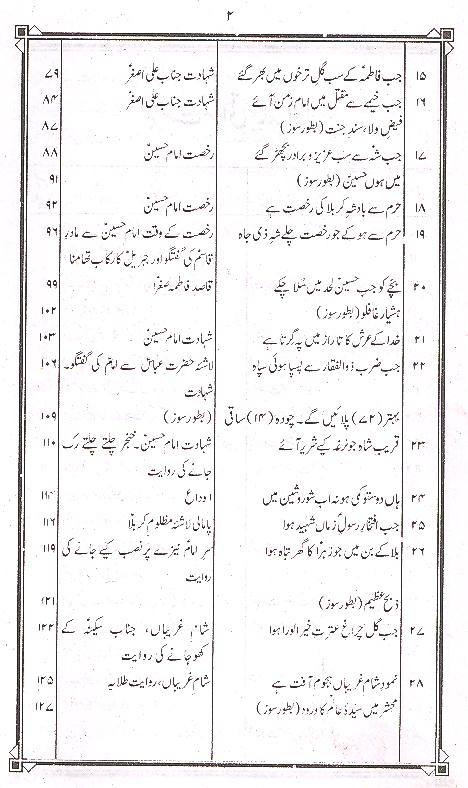 ۲
۱۵ جب فاطمہؑ کے سب گل تر خوں میں بھر گئے شہادت جناب علی اصغرؑ ۷۹
۱۶ جب خیمے سے مقتل میں امام زمن آئے شہادت جناب علی اصغرؑ ۸۴
فیض ولا، سندِ جنت (بطور سوز) ۸۷
۱۷ جب شہؑ سے سب عزیز و برادر بچھڑ گئے رخصت امام حسینؑ ۸۸
میں ہوں حسین (بطور سوز) ۹۱
۱۸ حرم سے بادشہِ کربلا کی رخصت ہے رخصت امام حسین ۹۲
۱۹ حرم سے ہو کے جو رخصت چلے شہِ ذی جاہ رخصت کے وقت امام حسینؑ سے مادرِ ۹۶
قاسم کی گفتگو اور جبریلؑ کا رکاب تھامنا
۲۰ بچے کو جب حسینؑ لحد میں سُلا چکے قاصد فاطمہ صغراؑ ۹۹
ہشیار غافلو (بطور سوز) ۱۰۲
۲۱ خدا کے عرش کا تارا زمیں پہ گرتا ہے شہادت امام حسینؑ ۱۰۳
۲۲ جب ضربِ ذوالفقار سے پسپا ہوئی سپاہ لاشئہ حضرت عباسؑ سے امامؑ کی گفتگو۔ ۱۰۶
شہادت
بہتر (۷۲) پلائیں گے۔ چودہ (۱۴) ساقی (بطور سوز) ۱۰۹
۲۳ قریب شاہ جو نرغہ کیے شریر آئے شہادت امام حسینؑ۔ خنجر چلتے چلتے رک ۱۱۰
جانے کی روایت
۲۴ ہاں دوستو کمی ہو نہ اب شور و شین میں الوداع ۱۱۴
۲۵ جب افتخارِ رسولِؐ زماں شہید ہوا پامالی لاشئہ مظلوم کربلا ۱۱۶
۲۶ بلا کے بن میں جو زہراؑ کا گھر تباہ ہوا سرِ امامؑ نیزے پر نصب کیے جانے کی ۱۱۹
روایت
ذبحِ عظیم (بطور سوز) ۱۲۱
۲۷ جب گل چراغِ عترتِ خیرالورا ہوا شام غریباں، جناب سکینہؑ کے ۱۲۲
کھو جانے کی روایت
۲۸ نمودِ شامِ غریباں ہجومِ آفت ہے شام غریباں، روایت طلایہ ۱۲۵
محشر میں سیّدہؑ عالم کا ورود (بطور سوز) ۱۲۷